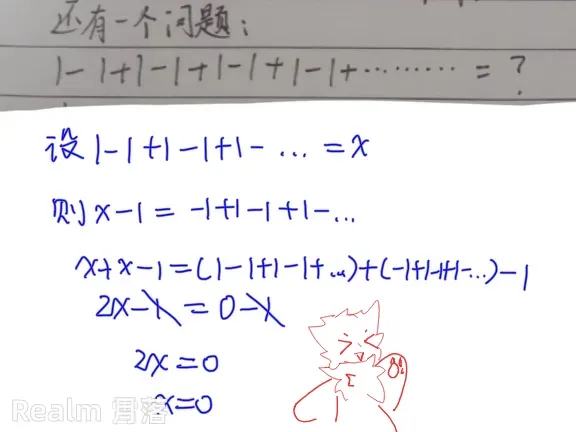 还有一个问题：
1-1+1-1+1-1+1-1+……… = ?
设 1-1+1-1+1-… = x
则 x-1 = -1+1-1+1-…
x+x-1=(1-1+1-1+…)+(-1+1-1+1-…)-1
2x-1 = 0-1
2x=0
x=0
Realm 骨落